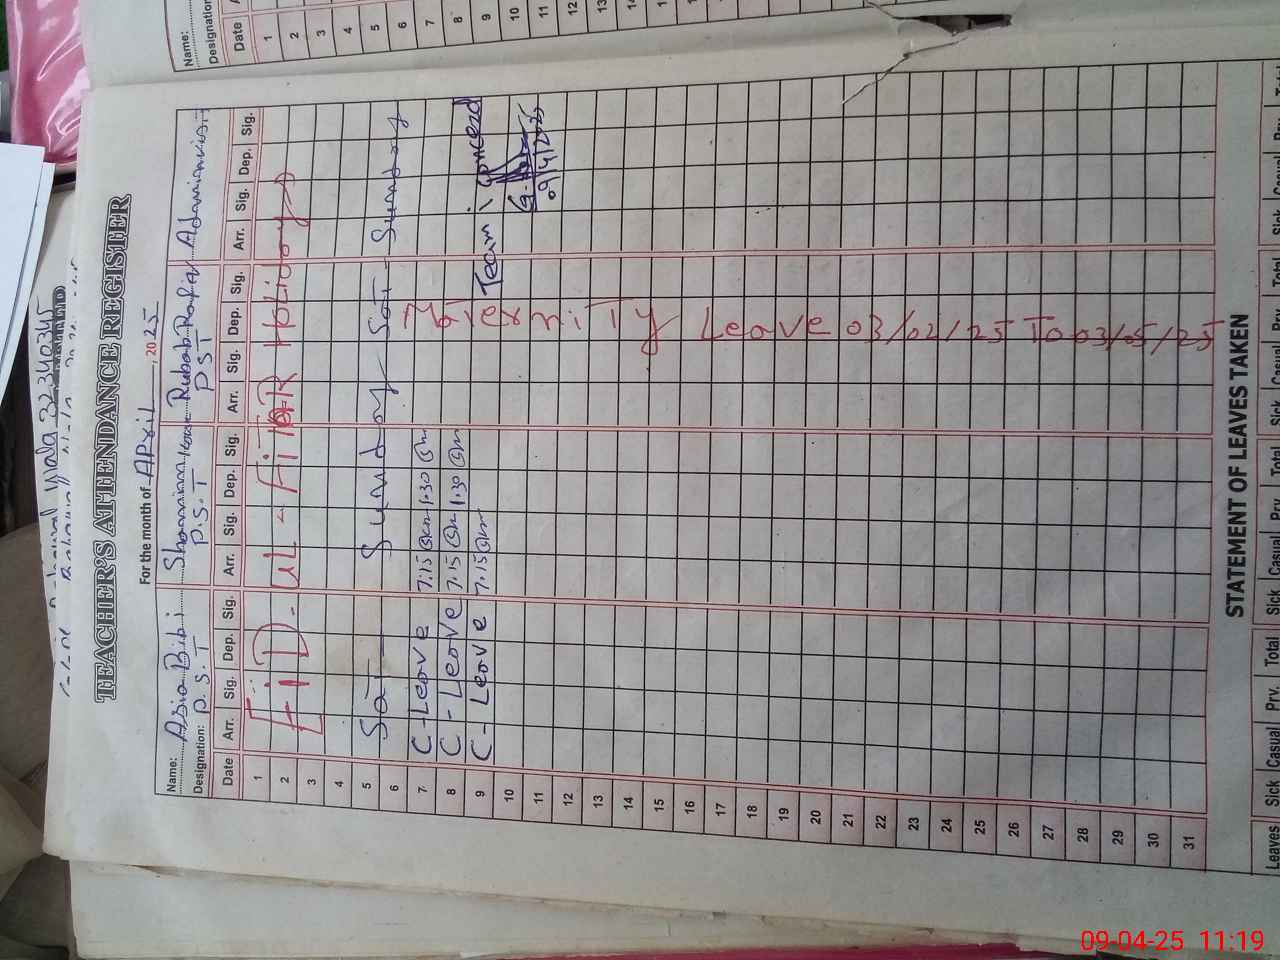 32340345
TEACHER'S ATTENDANCE REGISTER
For the month of April, 2025
Name: Asia Bibi Shamim Rubab Rafia
Designation: P.S.T P.S.T PST
Date Arr. Sig. Dep. Sig. Arr. Sig. Dep. Sig. Arr. Sig. Dep. Sig. Arr. Sig. Dep. Sig.
1
2 EiD-UL-FiTER Holidays
3
4
5 Sat Sunday Sat Sunday
6
7 C-Leave 7:15 1:30
8 C-Leave 7.15 1.30
9 C-Leave 7.15 Team
09/4/2025
10
11
12
13
14
15
16
17
18
19
20
21
22
23
24
25
26
27
28
29
30
31
Maternity Leave 03/02/25 To 03/05/25
STATEMENT OF LEAVES TAKEN
Leaves Sick Casual Prv. Total Sick Casual Prv. Total Sick Casual Prv. Total Sick Casual Prv. Total
Name:
Designation
Date
1
2
3
4
5
6
7
8
9
10
11
12
13
09-04-25 11:19